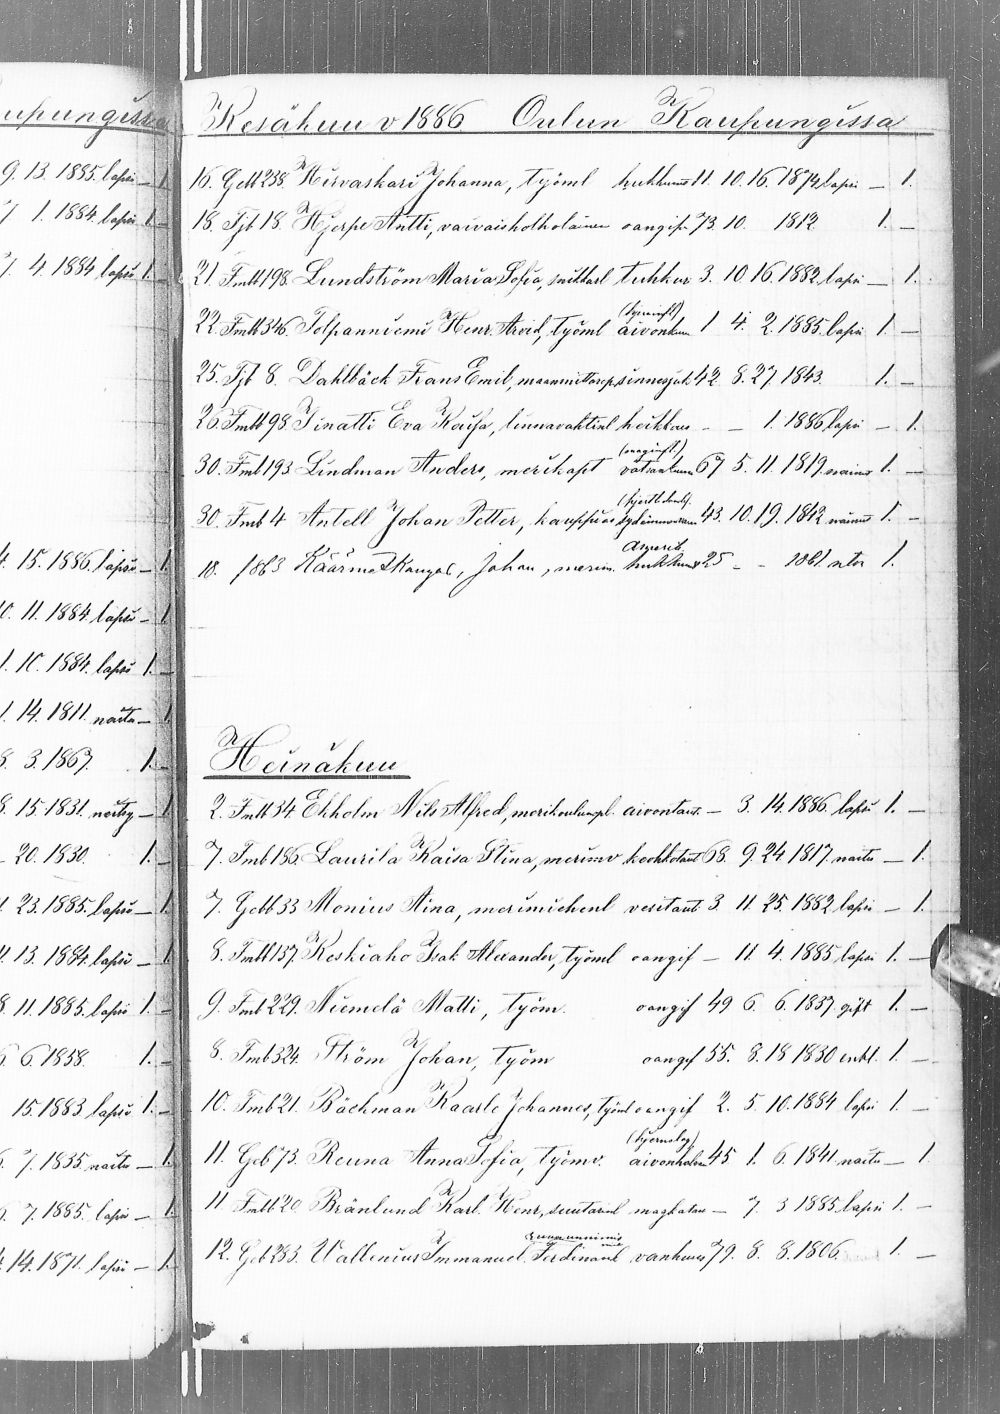 upungissa
9. 13. 1885. lapsi — 1.
7. 1. 1884. lapsi 1. —
7. 4. 1884. lapsi 1. —
4. 15. 1886. lapsi — 1.
0. 11. 1884. lapsi — 1.
1. 10. 1884. lapsi 1. —
1. 14. 1811. naitu — 1.
8. 3. 1867. 1. —
8. 15. 1831. — 1.
20. 1830. 1. —
23. 1885. lapsi — 1.
13. 1884. lapsi — 1.
8. 11. 1885. lapsi 1. —
6. 6. 1858. 1. —
15. 1883. lapsi 1. —
7. 1835. naitu — 1.
7. 1885. lapsi — 1.
14. 1871. lapsi — 1.
Kesäkuu v 1886 Oulun Kaupungissa
16. Gebb 238. Hirvaskari Johanna, työml 11. 10. 16. 1874 lapsi — 1.
18. Fjb 18. Hjerpe Antti, vaivaisholholainen oangif. 73. 10. 1812. 1. —
21. Fmbb 198. Lundström Maria Sofia, tuhkur 3. 10. 16. 1882. lapsi — 1.
22. Fmbb 346. Tolpanniemi Henr. Arvid, työml 1 4. 2. 1885. lapsi 1. —
25. Fjb 8. Dahlbäck Frans Emil, 42. 8. 27. 1843. 1. —
26. Fmbb 98. Pinatti Eva Kaisa, linnavahtinl heikkous — — 1. 1886 lapsi — 1.
30. Fmb 193 Lindman Anders, merikapt 67 5. 11. 1819. nainut 1. —
30. Fmb 4 Antell Johan Petter, kauppias 43. 10. 19. 1842 nainut 1. —
18. f 863 Käärmeskangas, Johan, merim. 25 — — 1861. 1.
Heinäkuu
2. Fmbb 34. Ekholm Nils Alfred, aivontaut. — 3. 14. 1886. lapsi 1. —
7. Fmb 186. Laurila Kaisa Stina, merimv 68. 9. 24 1817. naitu — 1.
7. Gebb 33 Monius Aina, merimiehenl vesitaut 3. 11. 25. 1882 lapsi — 1.
8. Fmbb 137. Keskiaho Isak Alexander, työml oangif — 11. 4. 1885 lapsi 1. —
9. Fmb 229. Niemelä Matti, työm. oangif 49 6. 6. 1837. gift 1. —
8. Fmb 324. Ström Johan, työm oangif 55. 8. 18 1830 enkl. 1. —
10. Fmb 21. Bäckman Kaarle Johannes, työml oangif 2. 5. 10. 1884 lapsi 1. —
11. Geb 73. Reuna Anna Sofia, työmv. 45 1. 6. 1841. naitu — 1
11. Fmbb 20. Bränlund Karl. Henr, suutarinl — 7. 3 1885 lapsi 1. —
12. Geb 283. Wallenius Immanuel Ferdinand vanhuus 79. 8. 8. 1806. 1. —